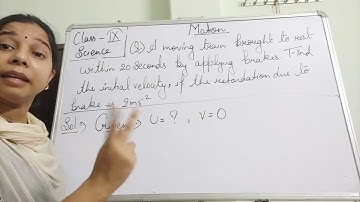 Class - IX
Science
Motion
(Q) A moving train brought to rest
within 20 seconds by applying brakes. Find
the initial velocity, if the retardation due to
brake is 2ms⁻²
Sol ⇒ Given ⇒ u = ? , v = 0